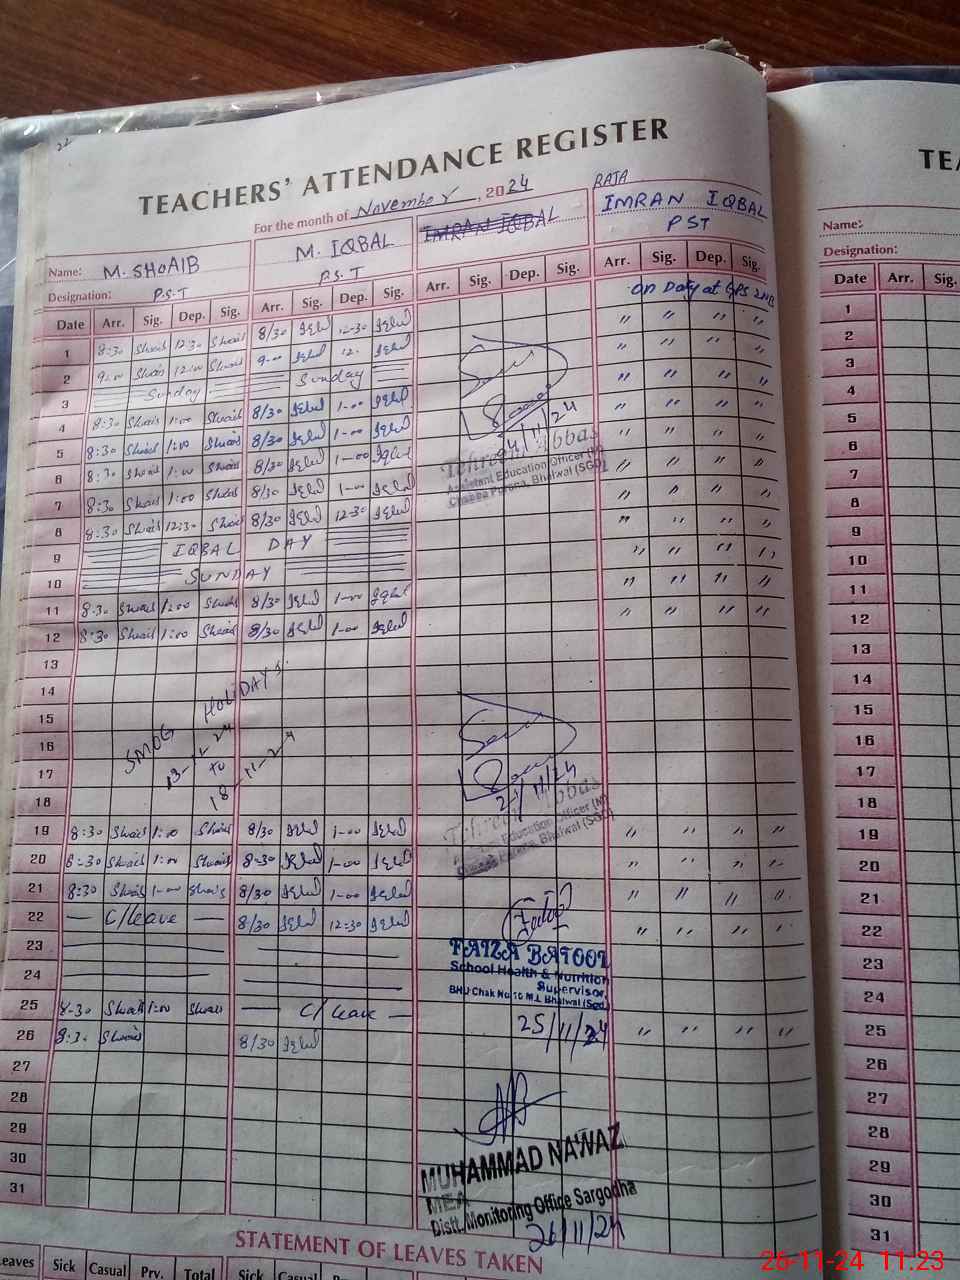 22
TEACHERS' ATTENDANCE REGISTER
For the month of November, 2024
Name: M. SHOAIB M. IQBAL IMRAN IQBAL RAJA IMRAN IQBAL
Designation: P.S.T P.S.T PST
Date Arr. Sig. Dep. Sig. Arr. Sig. Dep. Sig. Arr. Sig. Dep. Sig. Arr. Sig. Dep. Sig.
On Duty at GPS
1 8:30 Shoaib 12:30 Shoaib 8/30 Iqbal 12-30 Iqbal " " " "
2 9:00 Shoaib 12:00 Shoaib 9-00 Iqbal 12. Iqbal " " " "
3 Sunday Sunday " " " "
4 8:30 Shoaib 1:00 Shoaib 8/30 Iqbal 1-00 Iqbal " " " "
5 8:30 Shoaib 1:00 Shoaib 8/30 Iqbal 1-00 Iqbal " " " "
6 8:30 Shoaib 1:00 Shoaib 8/30 Iqbal 1-00 Iqbal " " " "
7 8:30 Shoaib 1:00 Shoaib 8/30 Iqbal 1-00 Iqbal " " " "
8 8:30 Shoaib 12:30 Shoaib 8/30 Iqbal 12-30 Iqbal " " " "
9 IQBAL DAY " " " "
10 SUNDAY " " " "
11 8:30 Shoaib 1:00 Shoaib 8/30 Iqbal 1-00 Iqbal " " " "
12 8:30 Shoaib 1:00 Shoaib 8/30 Iqbal 1-00 Iqbal
13
14
15
16
17
18
SMOG HOLIDAYS
13-11-24
to
18-11-24
19 8:30 Shoaib 1:00 Shoaib 8/30 Iqbal 1-00 Iqbal " " " "
20 8:30 Shoaib 1:00 Shoaib 8:30 Iqbal 1-00 Iqbal " " " "
21 8:30 Shoaib 1-00 Shoaib 8/30 Iqbal 1-00 Iqbal " " " "
22 — C/leave — 8/30 Iqbal 12:30 Iqbal " " " "
23
24
25 8-30 Shoaib 1:00 Shoaib — C/leave — " " " "
26 8:30 Shoaib 8/30 Iqbal
27
28
29
30
31
04/11/24
Tehreem Abbas
Assistant Education Officer (M)
Chabba Purana, Bhalwal (SGD)
21/11/24
Tehreem Abbas
Education Officer (M)
Purana, Bhalwal (SGD)
FAIZA BATOOL
School Health & Nutrition
Supervisor,
BHU Chak No 10 M.L Bhalwal (Sgd)
25/11/24
MUHAMMAD NAWAZ
MEA
Distt. Monitoring Office Sargodha
26/11/24
STATEMENT OF LEAVES TAKEN
Leaves Sick Casual Prv. Total Sick Casual
TEA
Name:
Designation:
Date Arr. Sig.
1
2
3
4
5
6
7
8
9
10
11
12
13
14
15
16
17
18
19
20
21
22
23
24
25
26
27
28
29
30
31
26-11-24 11:23